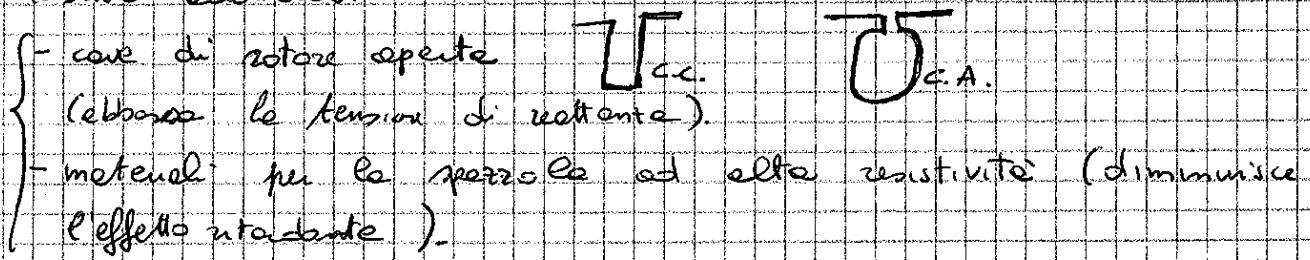 - cave di rotore aperte C.C. C.A.
(abbassa la tensione di reattanza).
- materiali per la spazzola ad alta resistività (diminuisce
l'effetto ritardante).